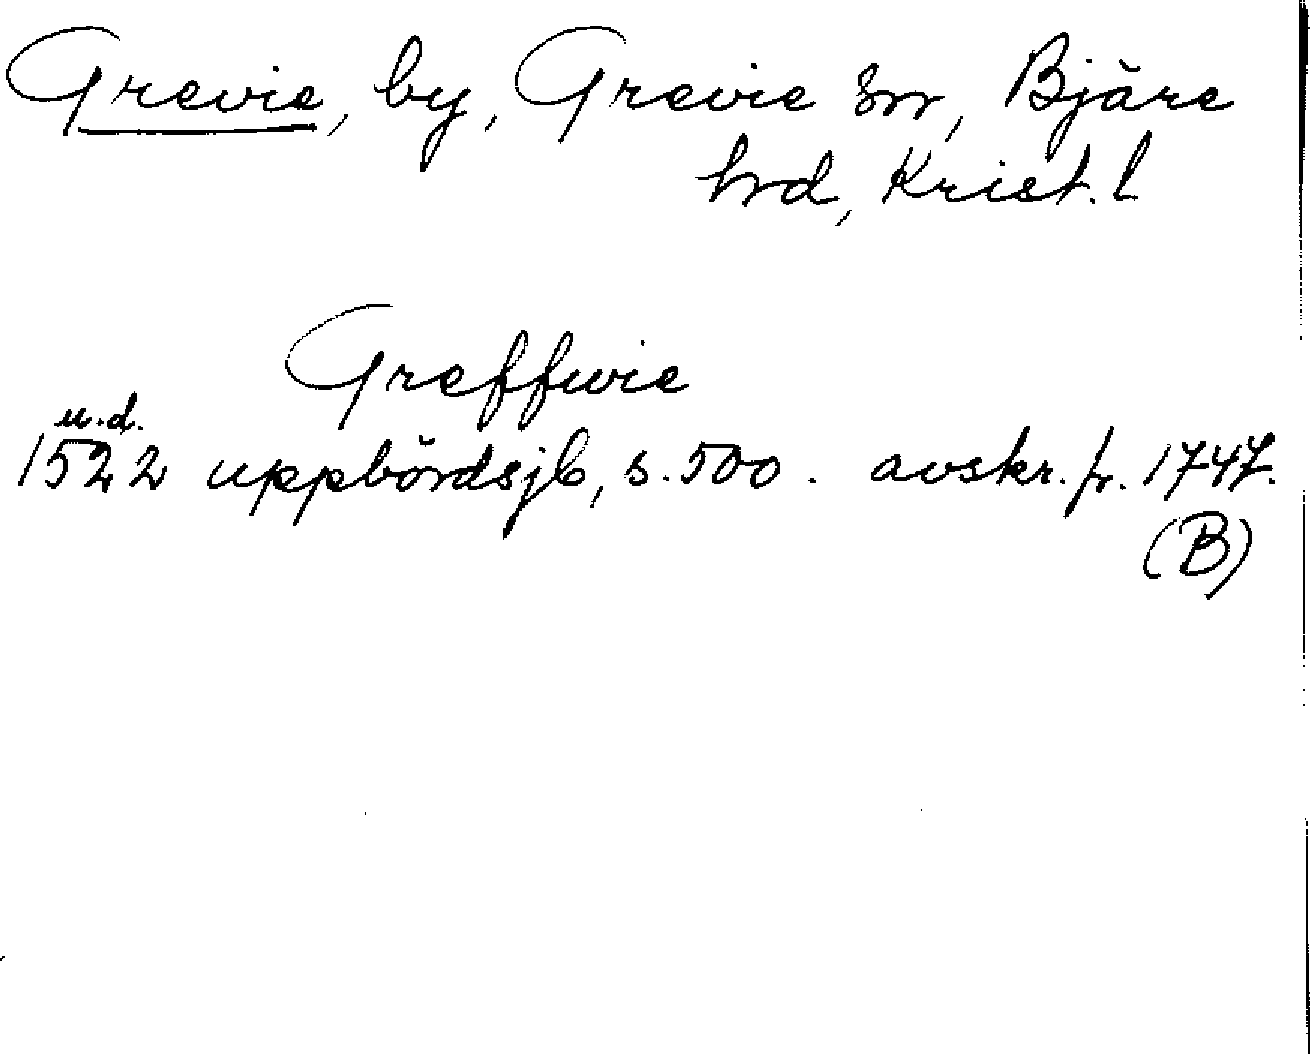 Grevie, by, Grevie sn, Bjäre
hrd, Krist. l
Greffwie
u.d.
1522 uppbördsjb, s. 500. avskr. fr. 1747.
(B)